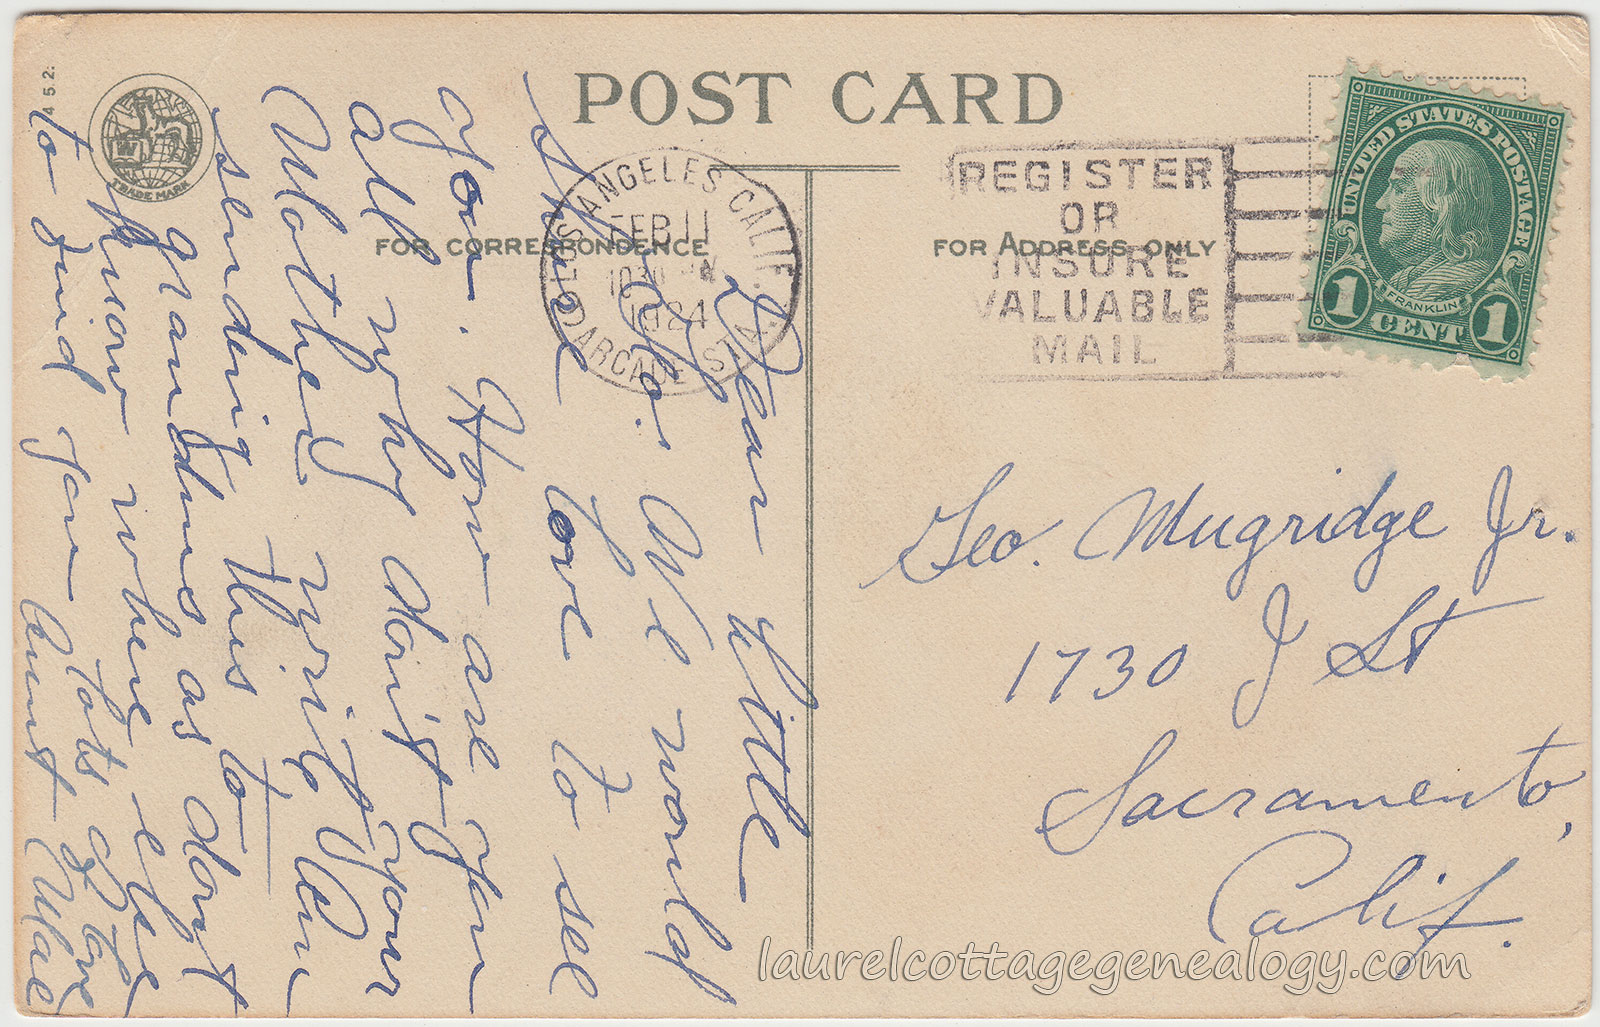 POST CARD
FOR CORRESPONDENCE
FOR ADDRESS ONLY
TRADE MARK
LOS ANGELES CALIF.
FEB 11
1924
ARCADE STA.
REGISTER
OR
INSURE
VALUABLE
MAIL
UNITED STATES POSTAGE
FRANKLIN
1 CENT 1
Dear Little
We would
sure love to see
you. How are you
all why don't your
Mother write. Am
sending this to
grandmas as dont
know where else
to find you
Lots of Love
Aunt Mae
Geo. Mugridge Jr.
1730 J St
Sacramento,
Calif.
laurelcottagegenealogy.com